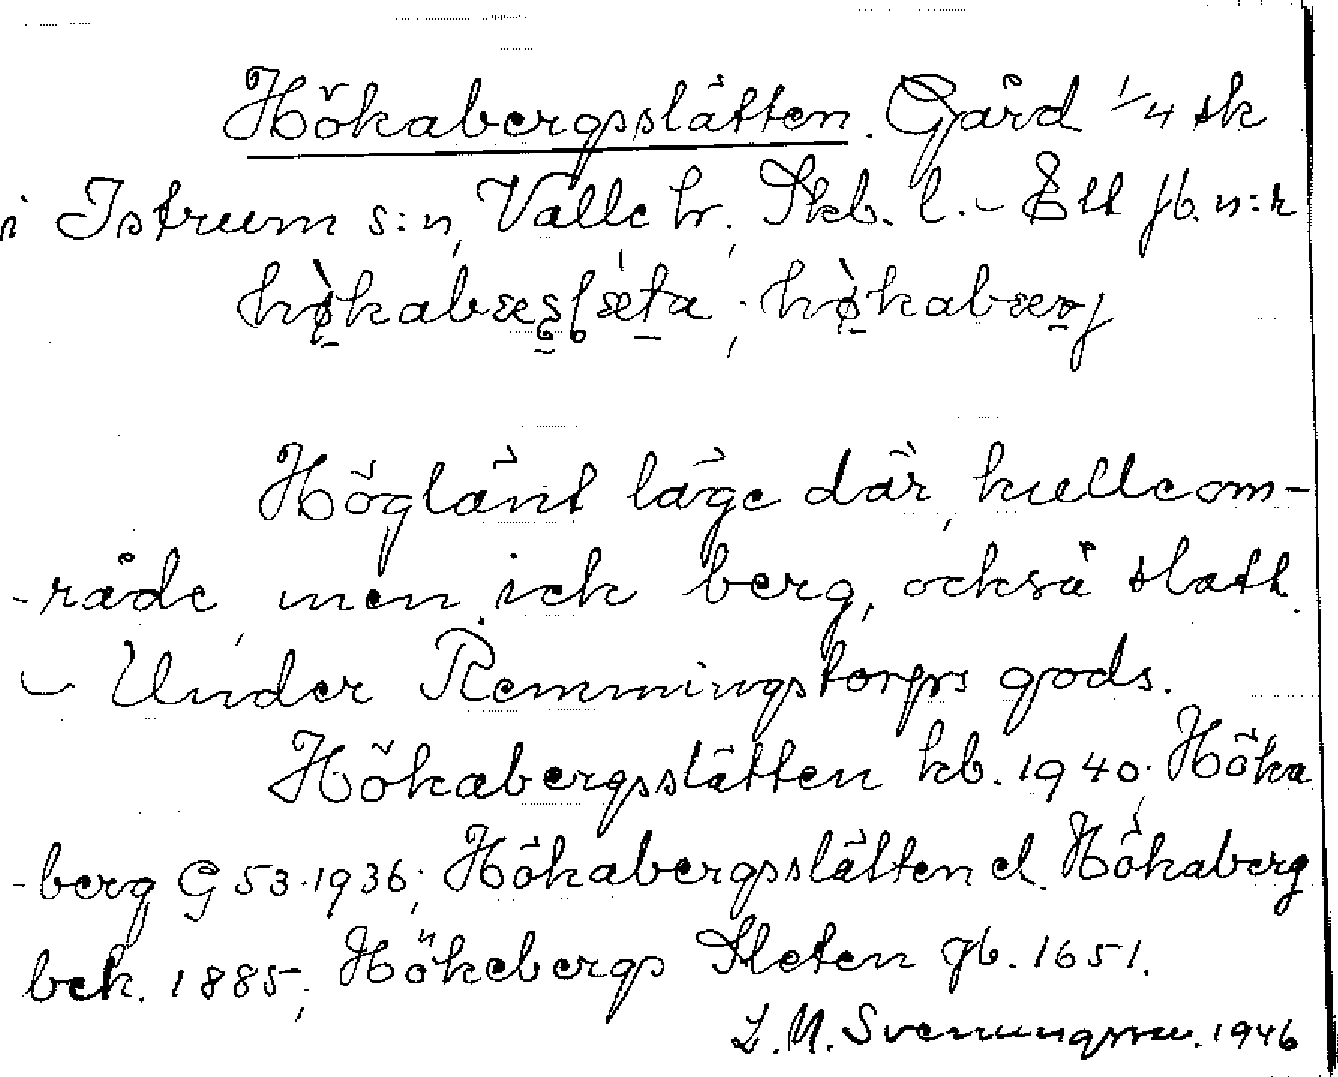 Hökabergsslätten. Gård 1/4 sk
i Istrum s:n, Valle hr, Skb. l. - Ett jb. n:r
hø̀kabæʂʂɭæ̀ta; hø̀kabærj
Höglänt läge där, kulleom-
-råde, men ick berg, också slätt.
- Under Remmingstorps gods.
Hökabergsslätten kb. 1940; Höka
-berg G 53.1936; Hökabergsslätten el. Hökaberg
bek. 1885; Hökebergs Sleten jb. 1651.
1946